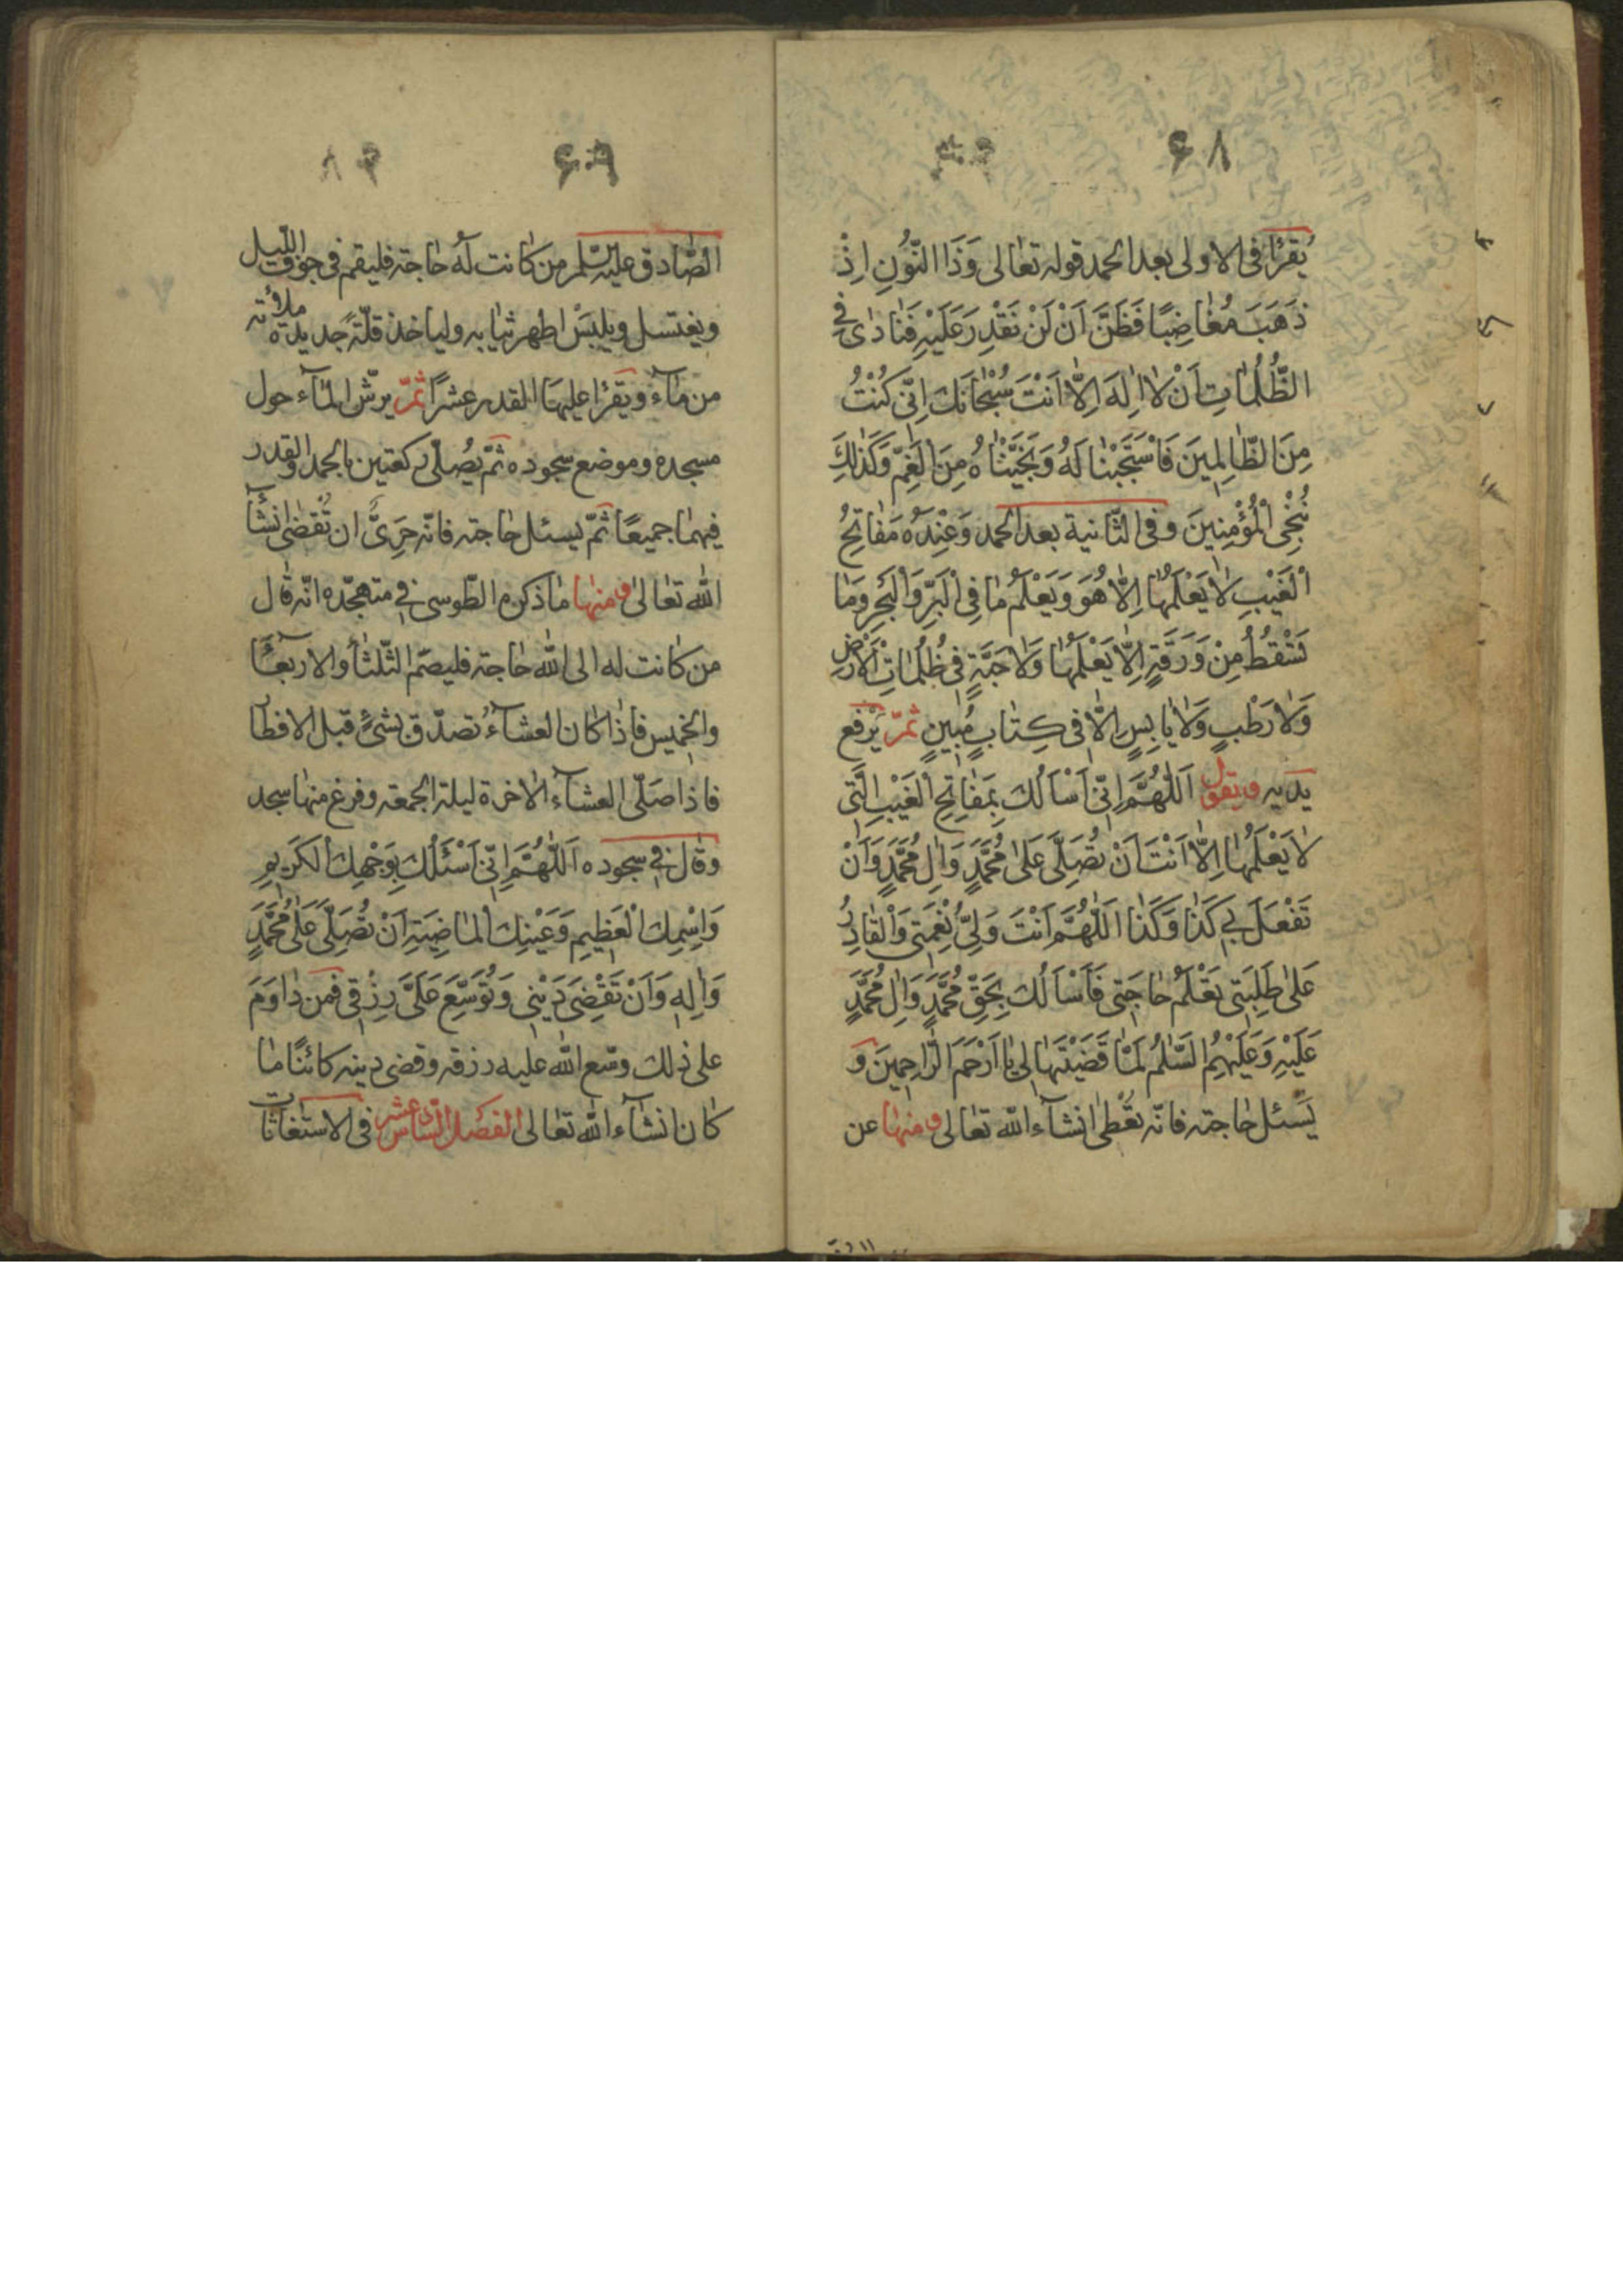 ۶۸
يُقرَأ في الاولى بعد الحمد قوله تعالى وَذَا النُّونِ اِذْ
ذَهَبَ مُغَاضِبًا فَظَنَّ اَنْ لَنْ نَقْدِرَ عَلَيْهِ فَنَادٰى فِي
الظُّلُمَاتِ اَنْ لَا اِلٰهَ اِلَّا اَنْتَ سُبْحَانَكَ اِنِّى كُنْتُ
مِنَ الظَّالِمِينَ فَاسْتَجَبْنَا لَهُ وَنَجَّيْنَاهُ مِنَ الْغَمِّ وَكَذٰلِكَ
نُنْجِى الْمُؤْمِنِينَ وفي الثّانية بعد الحمد وَعِنْدَهُ مَفَاتِحُ
الْغَيْبِ لَا يَعْلَمُهَا اِلَّا هُوَ وَيَعْلَمُ مَا فِى الْبَرِّ وَالْبَحْرِ وَمَا
تَسْقُطُ مِنْ وَرَقَةٍ اِلَّا يَعْلَمُهَا وَلَا حَبَّةٍ فِى ظُلُمَاتِ الْاَرْضِ
وَلَا رَطْبٍ وَلَا يَابِسٍ اِلَّا فِى كِتَابٍ مُبِينٍ ثمّ يَرْفع
يديه ويقول اَللّٰهُمَّ اِنِّى اَسْاَلُكَ بِمَفَاتِحِ الْغَيْبِ الَّتِى
لَا يَعْلَمُهَا اِلَّا اَنْتَ اَنْ تُصَلِّىَ عَلٰى مُحَمَّدٍ وَاٰلِ مُحَمَّدٍ وَاَنْ
تَفْعَلَ بِى كَذَا وَكَذَا اَللّٰهُمَّ اَنْتَ وَلِىُّ نِعْمَتِى وَالْقَادِرُ
عَلٰى طَلِبَتِى تَعْلَمُ حَاجَتِى فَاَسْاَلُكَ بِحَقِّ مُحَمَّدٍ وَاٰلِ مُحَمَّدٍ
عَلَيْهِ وَعَلَيْهِمُ السَّلٰمُ لَمَّا قَضَيْتَهَا لِى يَا اَرْحَمَ الرَّاحِمِينَ وَ
يَسئل حاجته فانّه تُعْطٰى انشآء الله تعالى ومنها عن
۶۹
الصّادق عليه السّلم من كانت له حاجة فليقم في جوف اللّيل
ويغتسل ويلبَس اطهر ثيابه ولياخذ قلّةً جديدة ملائه
من مآء ويقرَأ عليها القدر عشرًا ثمّ يرشّ المآء حول
مسجده وموضع سجوده ثمّ يُصلّى ركعتين بالحمد والقدر
فيهما جميعًا ثمّ يسئل حاجته فانّه حَرِىٌّ ان تُقضى انشآء
الله تعالى ومنها ما ذكره الطّوسي في متهجّده انّه قال
من كانت له الى الله حاجة فليصم الثّلثآء والاربعآء
والخميس فاذا كان العشآءُ تصدّق بشىءٍ قبل الافطار
فاذا صَلّى العشآء الاخرة ليلة الجمعة وفرغ منها سجد
وقال في سجوده اَللّٰهُمَّ اِنِّى اَسْئَلُكَ بِوَجْهِكَ الْكَرِيمِ
وَاسْمِكَ الْعَظِيمِ وَعَيْنِكَ الْمَاضِيَةِ اَنْ تُصَلِّىَ عَلٰى مُحَمَّدٍ
وَاٰلِهِ وَاَنْ تَقْضِىَ دَيْنِى وَتُوَسِّعَ عَلَىَّ رِزْقِى فمن داوَمَ
على ذلك وسّع الله عليه رزقه وقضى دينه كائنًا ما
كان انشآء الله تعالى الفصل السّادس عشر في الاستغاثات